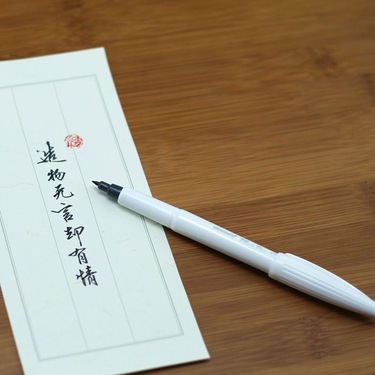 造物无言却有情